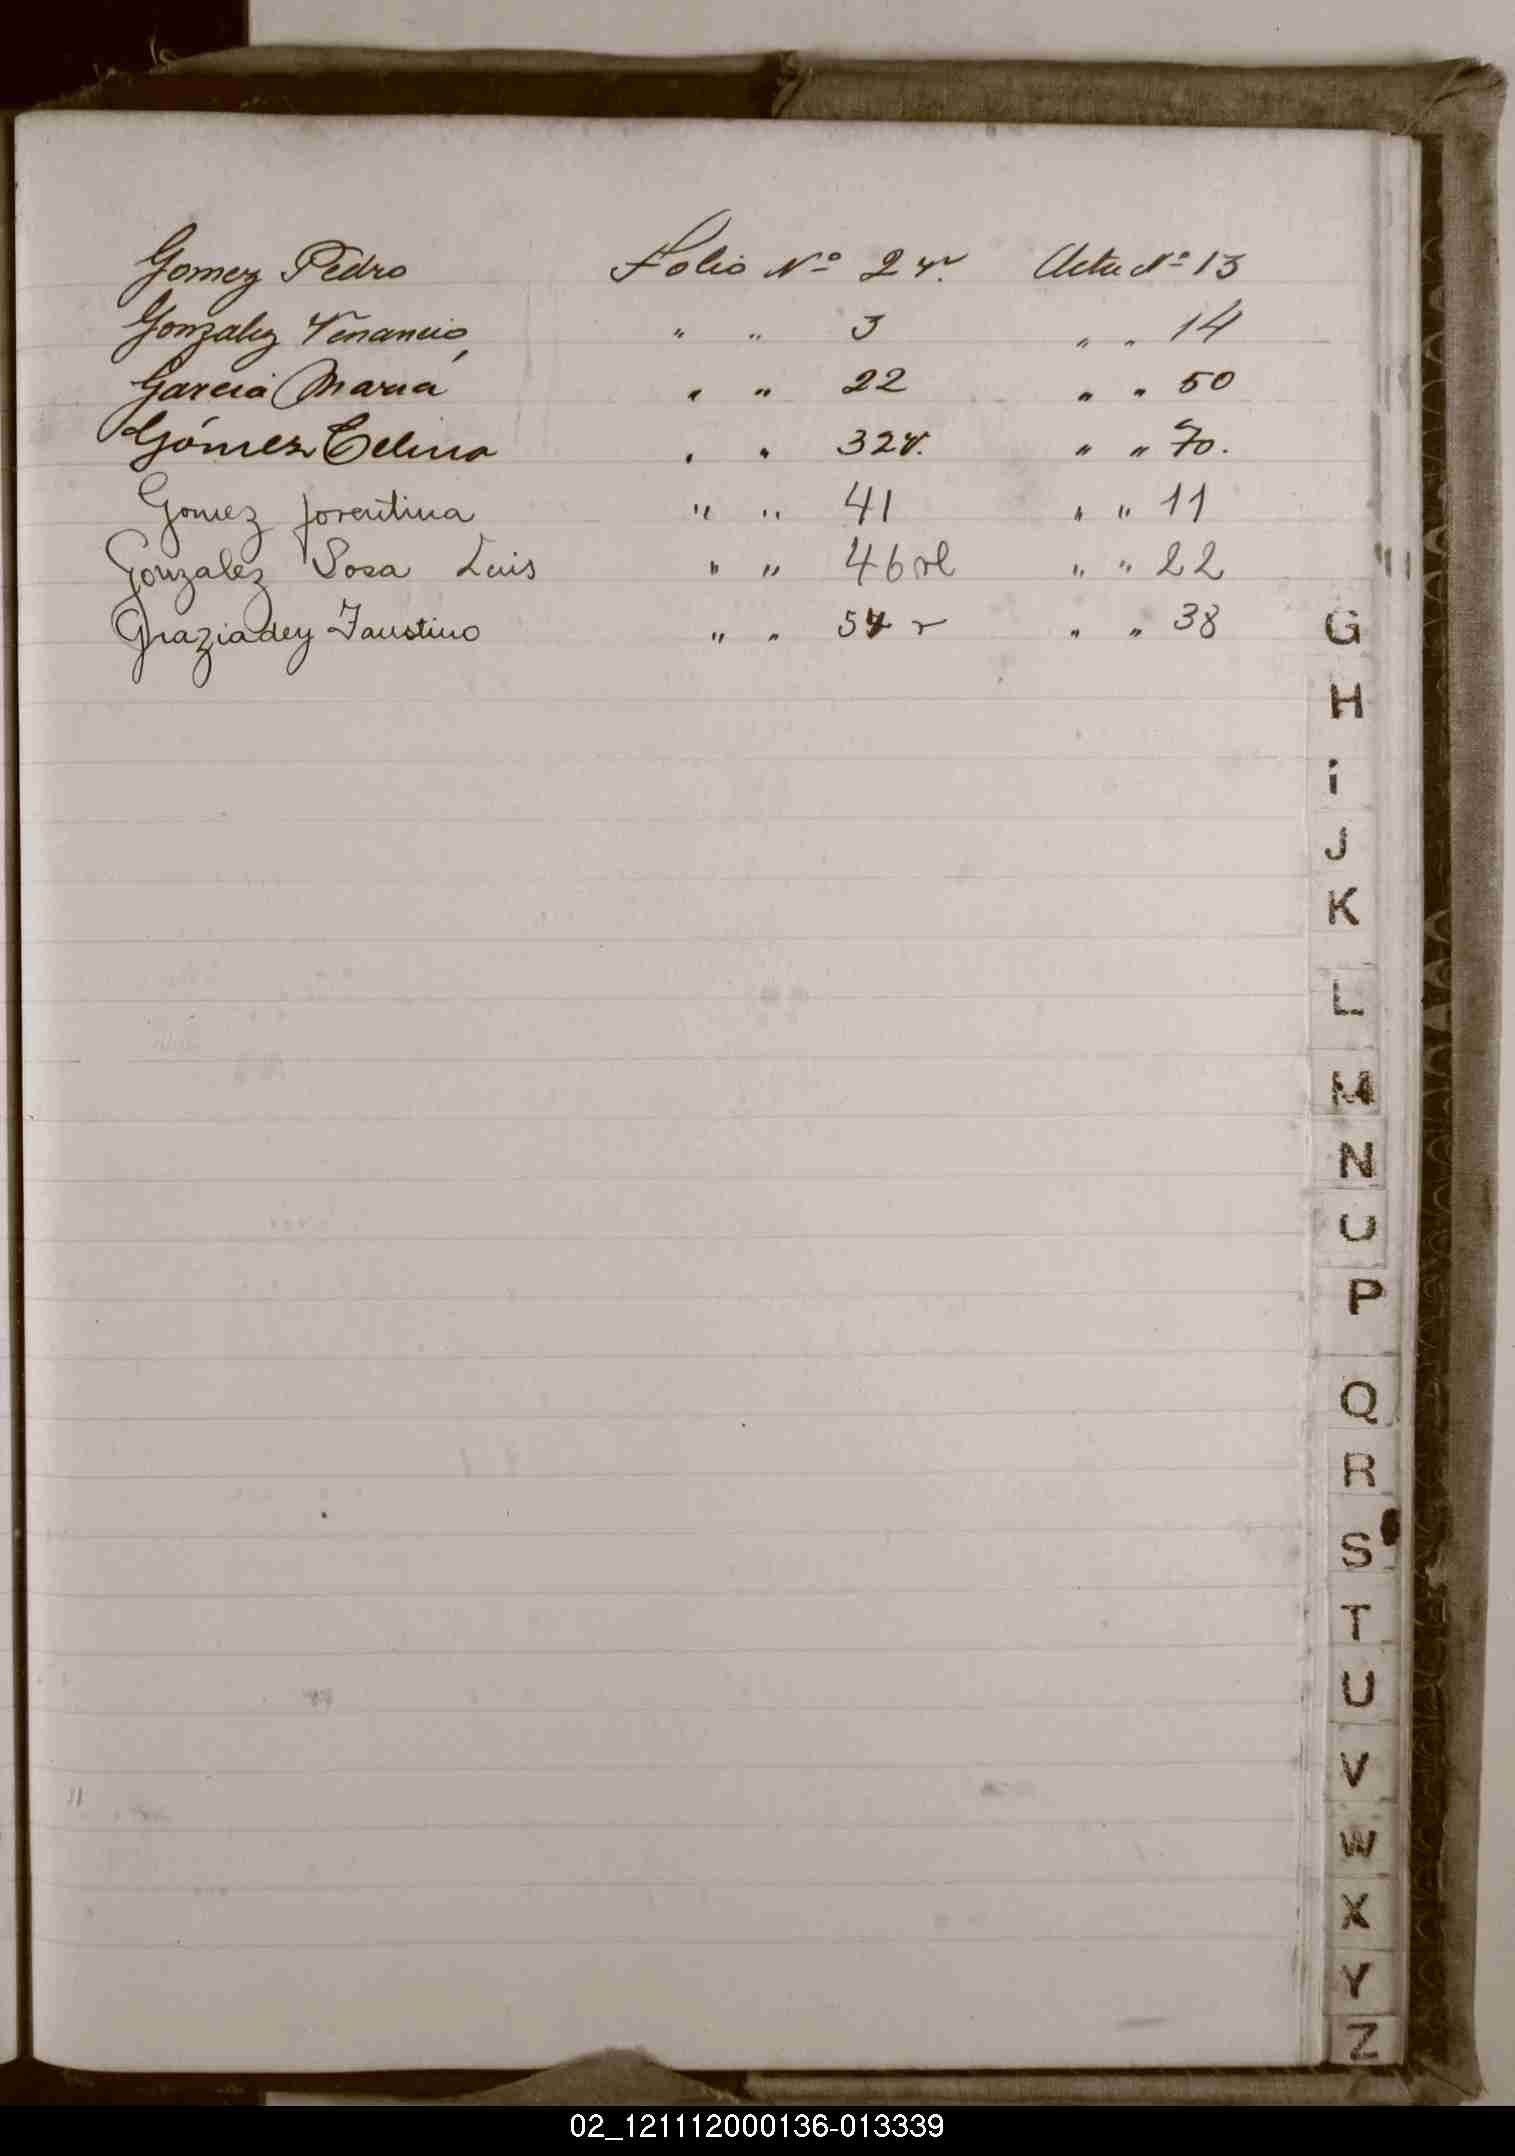 Gomez Pedro Folio Nº 2 v. Acta Nº 13
Gonzalez Venancio, " " 3 " " 14
Garcia Maria " " 22 " " 50
Gómez Celina " " 32v. " " 70.
Gomez florentina " " 41 " " 11
Gonzalez Sosa Luis " " 46 vl " " 22
Graziadey Faustino " " 54 r " " 38
G
H
i
J
K
L
M
N
O
P
Q
R
S
T
U
V
W
X
Y
Z
02_121112000136-013339